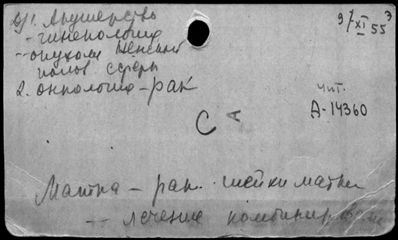 1. Акушерство
- гинекология
- опухоли женской
полов сферы
2. онкология - рак
3
9/XI 55
чит.
А-14360
С А
Матка - рак. шейки матки
-- лечение комбинир